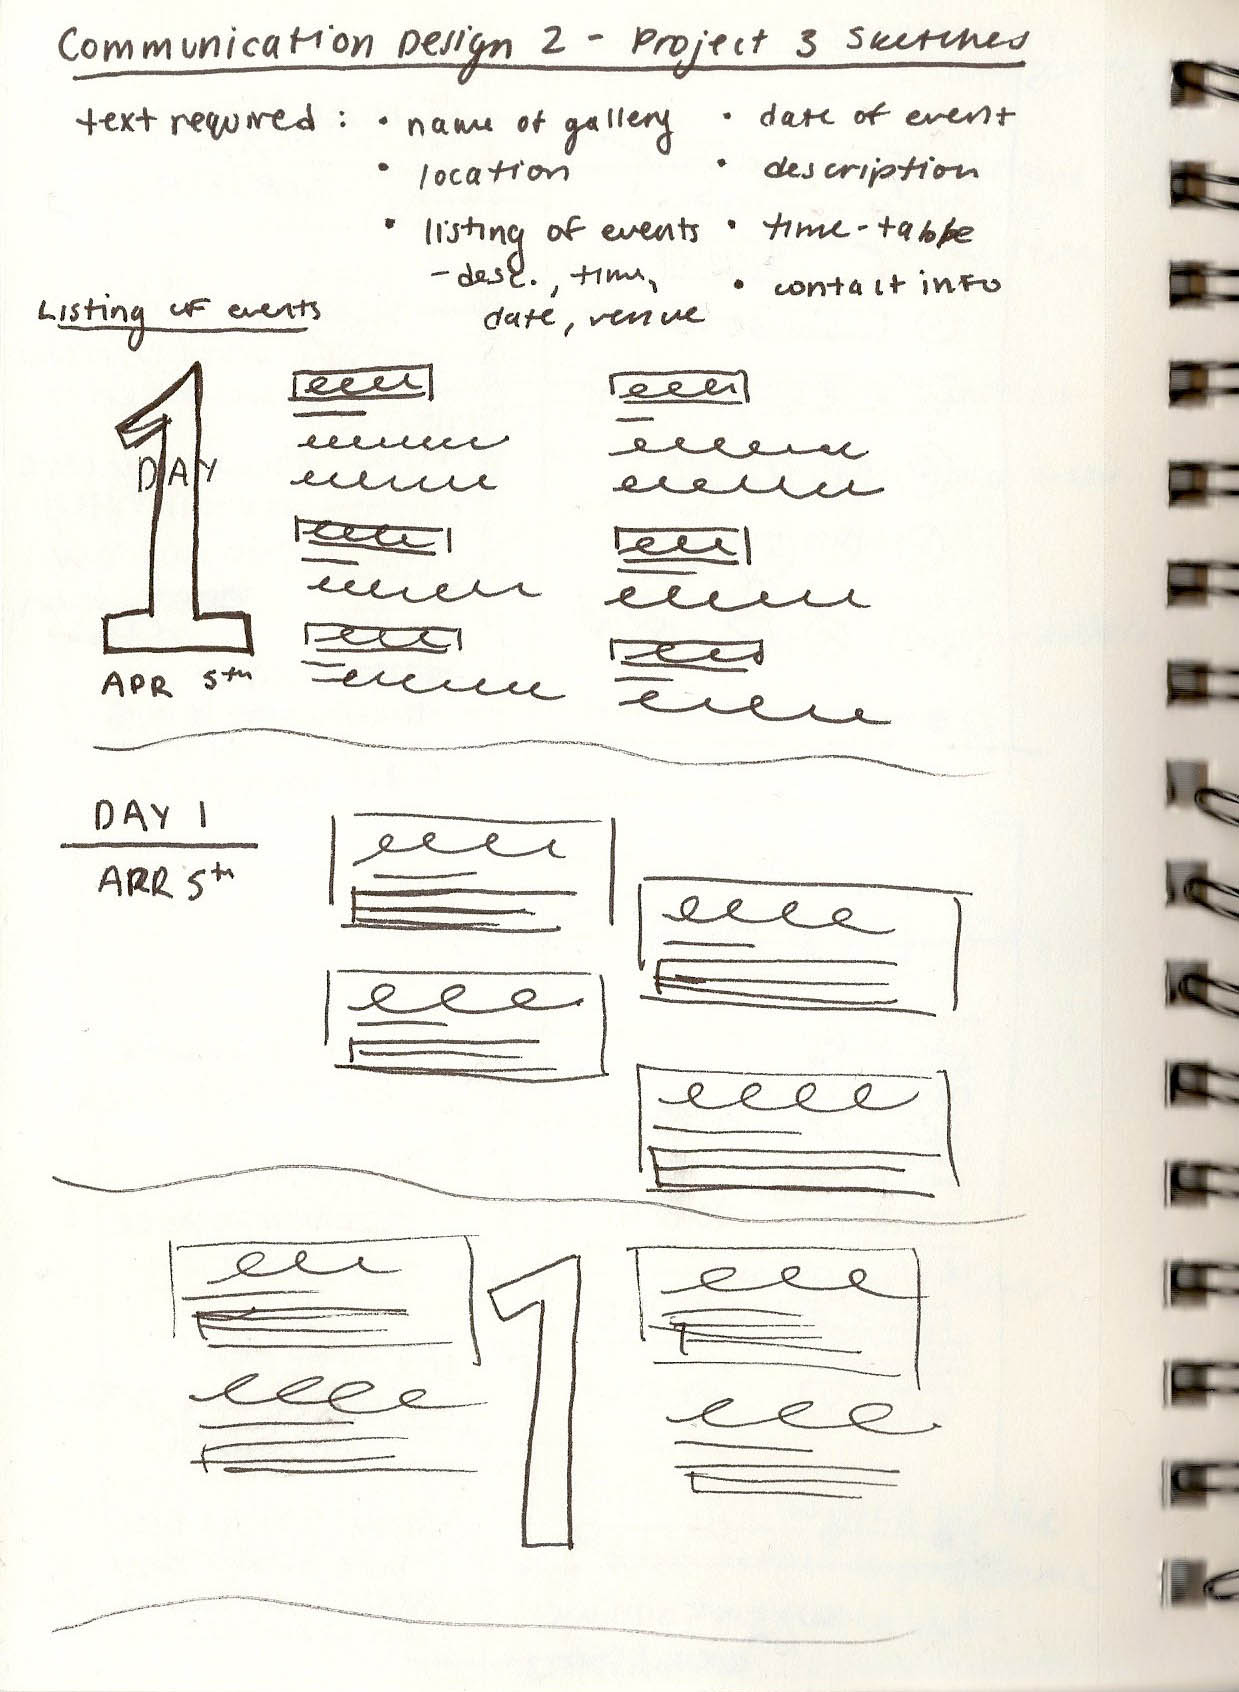 Communication Design 2 - Project 3 Sketches
text required : • name of gallery • date of event
• location • description
• listing of events • time-table
- desc., time, • contact info
date, venue
Listing of events
DAY
1
APR 5th
DAY 1
APR 5th
1